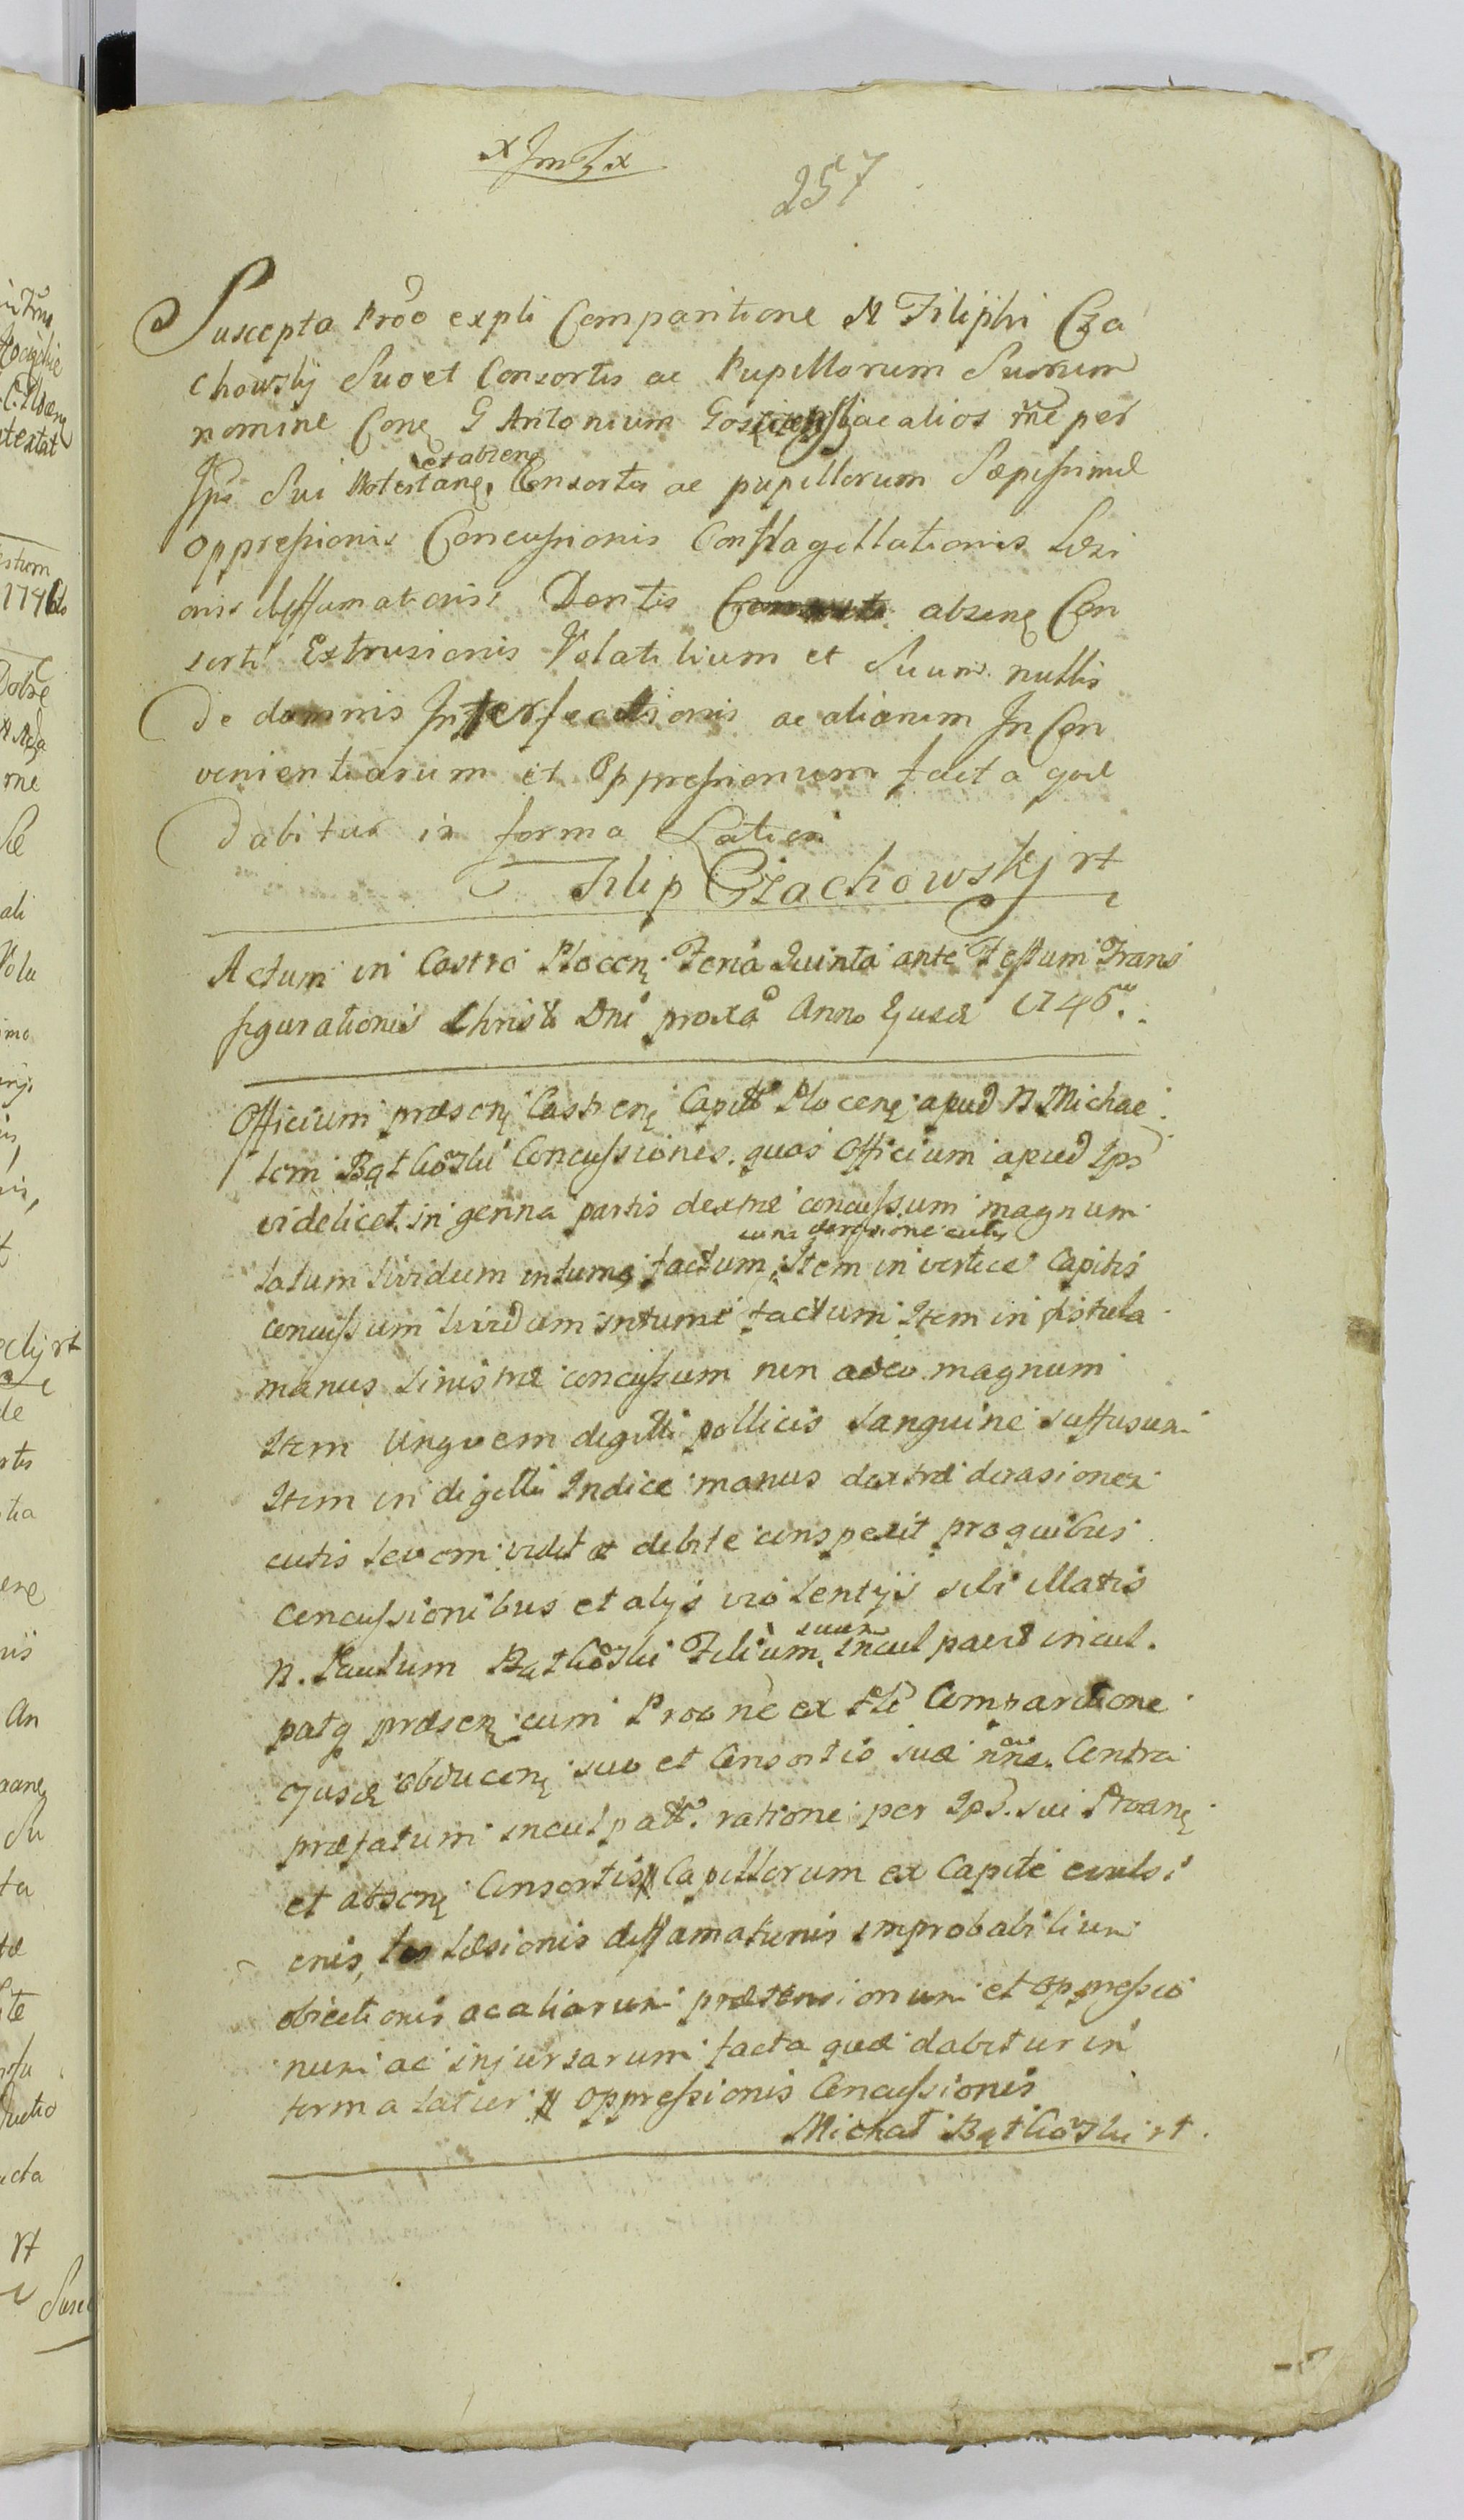 257
Suscepta Proo expli Comparitione N Filiphi Cza
chowskij Suo et Consortis ac Pupillorum Suorum
nomine Conę G Antonium ac alios rne per
Ips Sui Protestanę et absen Consortis ac pupillorum Sæpissimæ
oppressionis Concussionis Conflagellationis Lesi
onis deffamationis Dentis absenę Con
sortis Extrusionis Volatilium et Suum nullis
de damnis Interfectionis ac aliarum In Con
venientiarum et Oppressionum facta quæ
dabitur in forma Latiori
Filip Czachowskj rt
Actum in Castro Plocenę Feria Quinta ante Festum Trans
figurationis Christi Dni proxa Anno Ejusd 1746to
Officium præsenę Castrenę Capitt Plocenę apud N Michae
lem Bątkowski Concussiones quas Officium apud Ips
videlicet in genna partis dextræ concussum magnum
latum lividum intumę factum cum derasione cutis Item in vertice Capitis
concussum lividum intume factum Item in fistula
manus sinistræ concussum non adeo magnum
Item Unguem digitti pollicis sanguine suffusum
Item in digitti Indice manus dextræ derasionem
cutis levem vidit et debite conspexit pro quibus
concussionibus et alijs violentijs sibi illatis
N. Paulum Bątkowski Filium suum inculpavit incul
patq præsenę cum Proo ne ex pli Comparitione
ejusd obducenę suo et Consortis suæ nne Contra
præfatum inculpatt. ratione per Ips. sui Proanę
et absenę Consortis Capillorum ex Capite evulsi
onis, læsionis deffamationis improbabilium
obiectionis ac aliarum prætensionum et oppressio
num ac injuriarum facta quæ dabitur in
forma latiori oppressionis Concussionis
Michał Bątkowski rt.